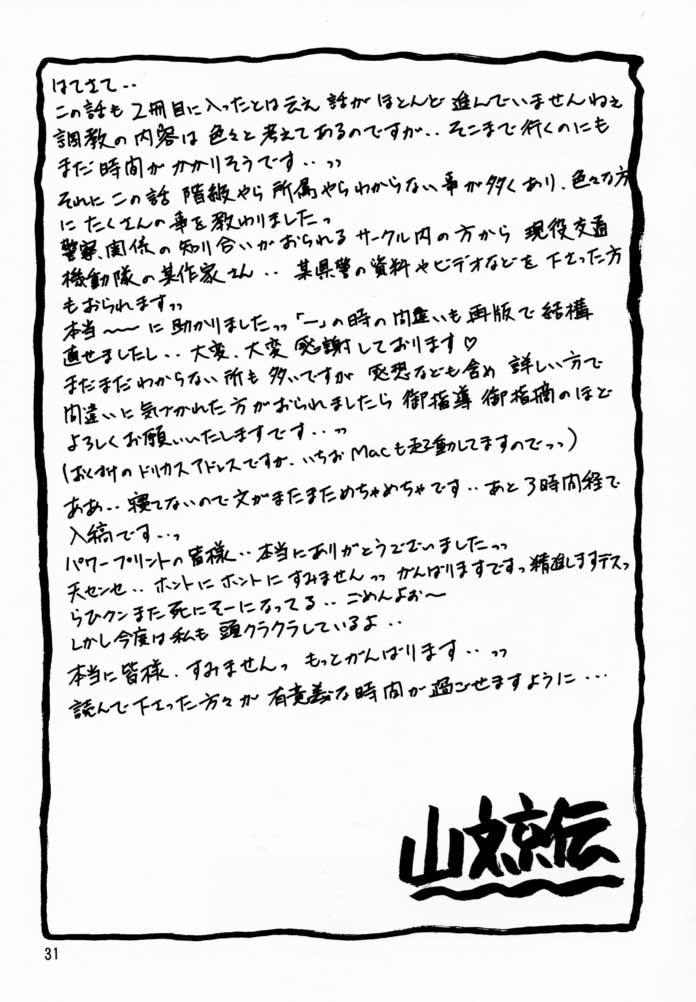 はてさて・・
この話も2冊目に入ったとは云え 話がほとんど 進んでいませんねぇ
調教の内容は 色々と考えてあるのですが・・そこまで行くのにも
まだ時間がかかりそうです・・ッッ
それにこの話 階級やら所属やらわからない事が多くあり、色々な方
にたくさんの事を教わりましたっ
警察関係の知り合いがおられるサークル内の方から 現役交通
機動隊の某作家さん・・ 某県警の資料やビデオなどを下さった方
もおられますッッ
本当〜〜に助かりましたッッ「一」の時の間違いも再版で結構
直せましたし・・大変、大変 感謝しております♡
まだまだわからない所も多いですが 感想なども含め 詳しい方で
間違いに気づかれた方がおられましたら 御指導 御指摘のほど
よろしくお願いいたしますです・・ッッ
(おくづけのドリカスアドレスですが、いちおMacも起動してますのでっっ)
ああ・・寝てないので文がまたまためちゃめちゃです・・あと3時間程で
入稿です・・っ
パワープリントの皆様・・本当にありがとうございましたッッ
天センセ・・ホントにホントにすみませんッッ がんばりますですっ精進しますデスっ
らひクンまた死にそーになってる・・ごめんよぉ〜
しかし今度は私も 頭クラクラしているよ・・
本当に皆様、すみませんっ もっとがんばります・・ッッ
読んで下さった方々が 有意義な時間が過ごせますように・・・
山文京伝
31